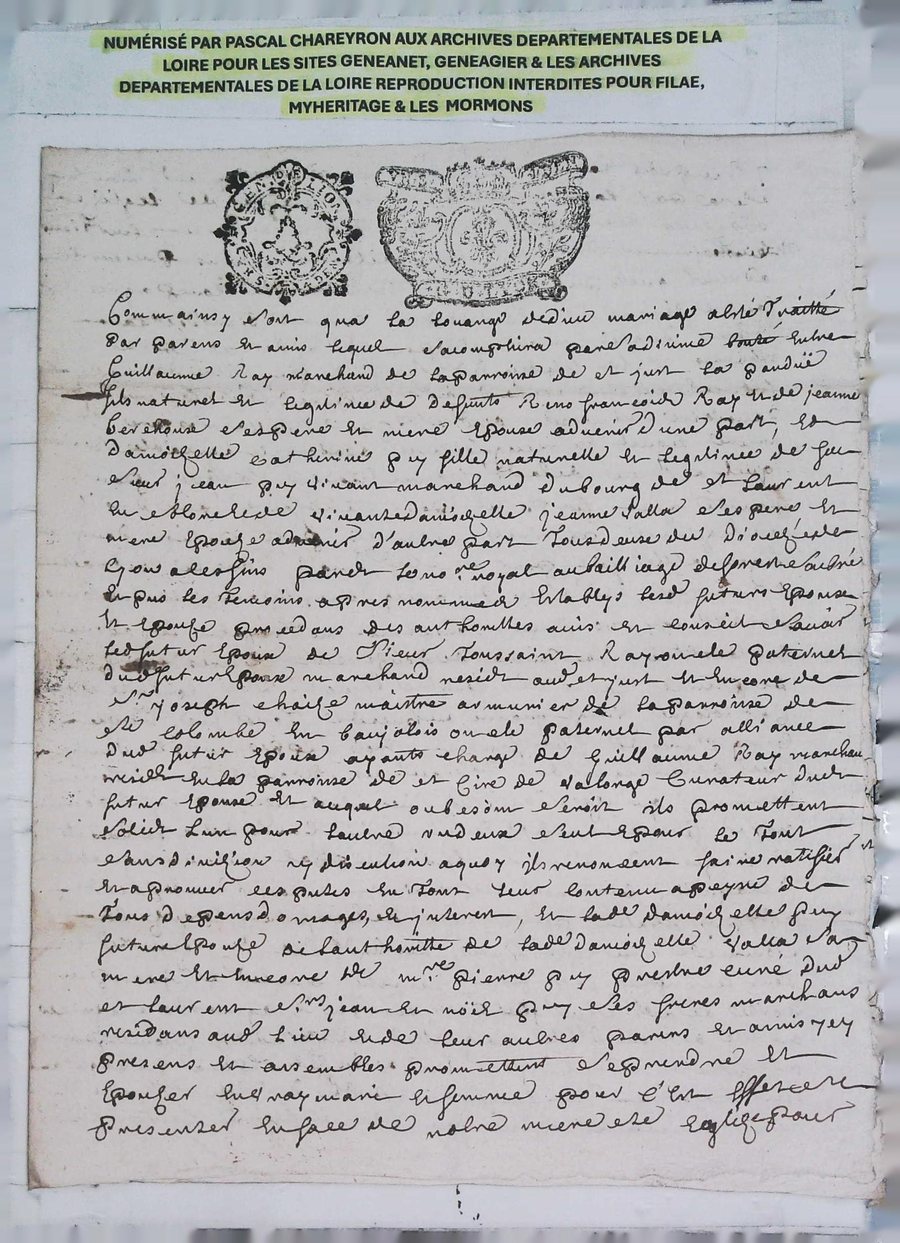 NUMÉRISÉ PAR PASCAL CHAREYRON AUX ARCHIVES DEPARTEMENTALES DE LA
LOIRE POUR LES SITES GENEANET, GENEAGIER & LES ARCHIVES
DEPARTEMENTALES DE LA LOIRE REPRODUCTION INTERDITES POUR FILAE,
MYHERITAGE & LES MORMONS
GEN DE LION
Comm ainsy soit qua la louange de dieu mariage a esté traitté
par parens et amis lequel sacomplira entre
Guillaume Ray marchand de la parroisse de st just la panduë
fils naturel et legitime de defunts françois Ray et de jeanne
ses pere et mere epoux advenir d'une part, et
damoizelle catherine puy fille naturelle et legitime de feu
sieur jean puy vivant marchand du bourg de st laurent
en et de vivante damoizelle jeanne valla ses pere et
mere epouze advenir d'autre part tous deux du diocèze de
lyon a ces fins pardt le no.re royal au bailliage de forest
et pns les temoins apres nommes establys lesd futurs epoux
et epouze procedans des authorittes avis et conseil savoir
led futur epoux de sieur Toussaint Ray oncle paternel
dud futur epoux marchand residt aud st just et encore de
Sr joseph maistre armurier de la parroisse de
ste colombe en baujolois oncle paternel par alliance
dud futur epoux ayants charge de Guillaume Ray marchan
en la parroisse de st Cire de valorge Curateur dudt
futur epoux et auquel ou besoin seroit ils promettent
solidt l'un pour l'autre un deux seul et pour le tout
sans division ny discution a quoy ils renoncent faire ratifier
et aprouver ces pntes en tout leur contenu a peyne de
tous depens domages, et interest, et lade damoizelle puy
future epouze de lauthoritte de lade damoizelle valla sa
mere et encore de m.re pierre puy prestre curé dud
st laurent Srs jean et noël puy ses freres marchans
residans aud lieu et de leur autres parens et amis
presens et assembles promettent se prendre et
epouzer en vray mari et femme pour c'est effet se
presenter en face de nostre mere ste eglize pour